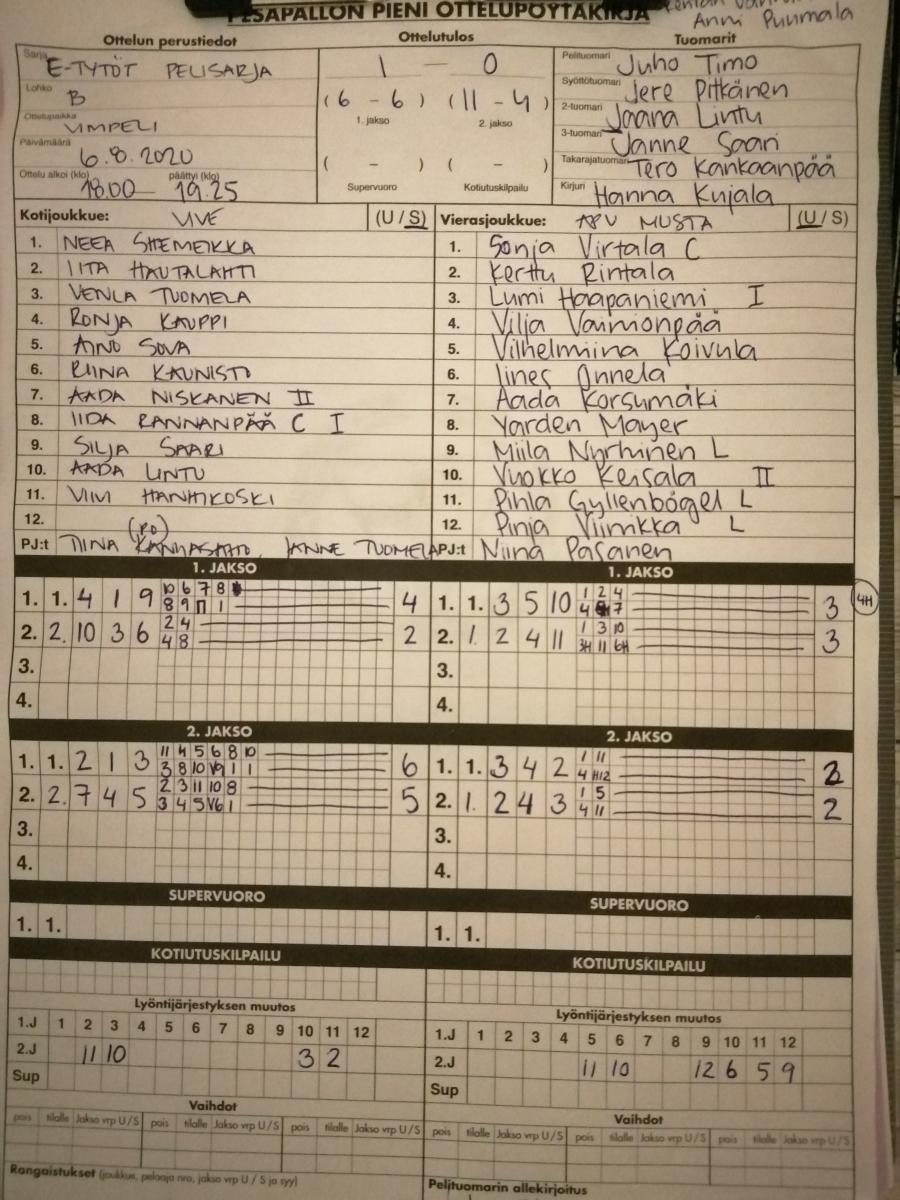 PESÄPALLON PIENI OTTELUPÖYTÄKIRJA
Anni Puumala
Ottelun perustiedot
Ottelutulos
Tuomarit
Sarja E-TYTÖT PELISARJA
Lohko B
Ottelupaikka VIMPELI
Päivämäärä 6.8.2020
Ottelu alkoi (klo) 18.00 päättyi (klo) 19.25
1 — 0
(6 - 6) (11 - 4)
1. jakso 2. jakso
( - ) ( - )
Supervuoro Kotiutuskilpailu
Pelituomari Juho Timo
Syöttötuomari Jere Pitkänen
2-tuomari Jaana Lintu
3-tuomari Janne Saari
Takarajatuomari Tero Kankaanpää
Kirjuri Hanna Kujala
Kotijoukkue: VIVE (U / S)
1. NEEA SHEMEIKKA
2. IITA HAUTALAHTI
3. VENLA TUOMELA
4. RONJA KAUPPI
5. AINO SOVA
6. RIINA KAUNISTO
7. AADA NISKANEN II
8. IIDA RANNANPÄÄ C I
9. SILJA SAARI
10. AADA LINTU
11. VIIVI HANHIKOSKI
12.
(PO)
PJ:t TIINA JANNE TUOMELA
Vierasjoukkue: APV MUSTA (U / S)
1. Sonja Virtala C
2. Kerttu Rintala
3. Lumi Haapaniemi I
4. Vilja Vainionpää
5. Vilhelmiina Koivula
6. Iines Onnela
7. Aada Korsumäki
8. Yarden Mayer
9. Miila Nyrhinen L
10. Vuokko Keisala II
11. Pihla Gyllenbögel L
12. Pinja Viinikka L
PJ:t Niina Pasanen
1. JAKSO
1. 1. 4 1 9 10 6 7 8 4
8 9 11 1
2. 2. 10 3 6 2 4 2
4 8
3.
4.
1. JAKSO
1. 1. 3 5 10 1 2 4 3 4H
4 7
2. 1. 2 4 11 1 3 10 3
3H 11 6H
3.
4.
2. JAKSO
1. 1. 2 1 3 11 4 5 6 8 10 6
3 8 10 V9 1 1
2. 2. 7 4 5 2 3 11 10 8 5
3 4 5 V6 1
3.
4.
2. JAKSO
1. 1. 3 4 2 1 11 2
4 H12
2. 1. 2 4 3 1 5 2
4 11
3.
4.
SUPERVUORO
1. 1.
SUPERVUORO
1. 1.
KOTIUTUSKILPAILU
KOTIUTUSKILPAILU
Lyöntijärjestyksen muutos
1.J 1 2 3 4 5 6 7 8 9 10 11 12
2.J 11 10 3 2
Sup
Lyöntijärjestyksen muutos
1.J 1 2 3 4 5 6 7 8 9 10 11 12
2.J 11 10 12 6 5 9
Sup
Vaihdot
pois tilalle Jakso vrp U / S pois tilalle Jakso vrp U / S pois tilalle Jakso vrp U / S
Vaihdot
pois tilalle Jakso vrp U / S pois tilalle Jakso vrp U / S pois tilalle Jakso vrp U / S
Rangaistukset (joukkue, pelaaja nro, jakso vrp U / S ja syy)
Pelituomarin allekirjoitus